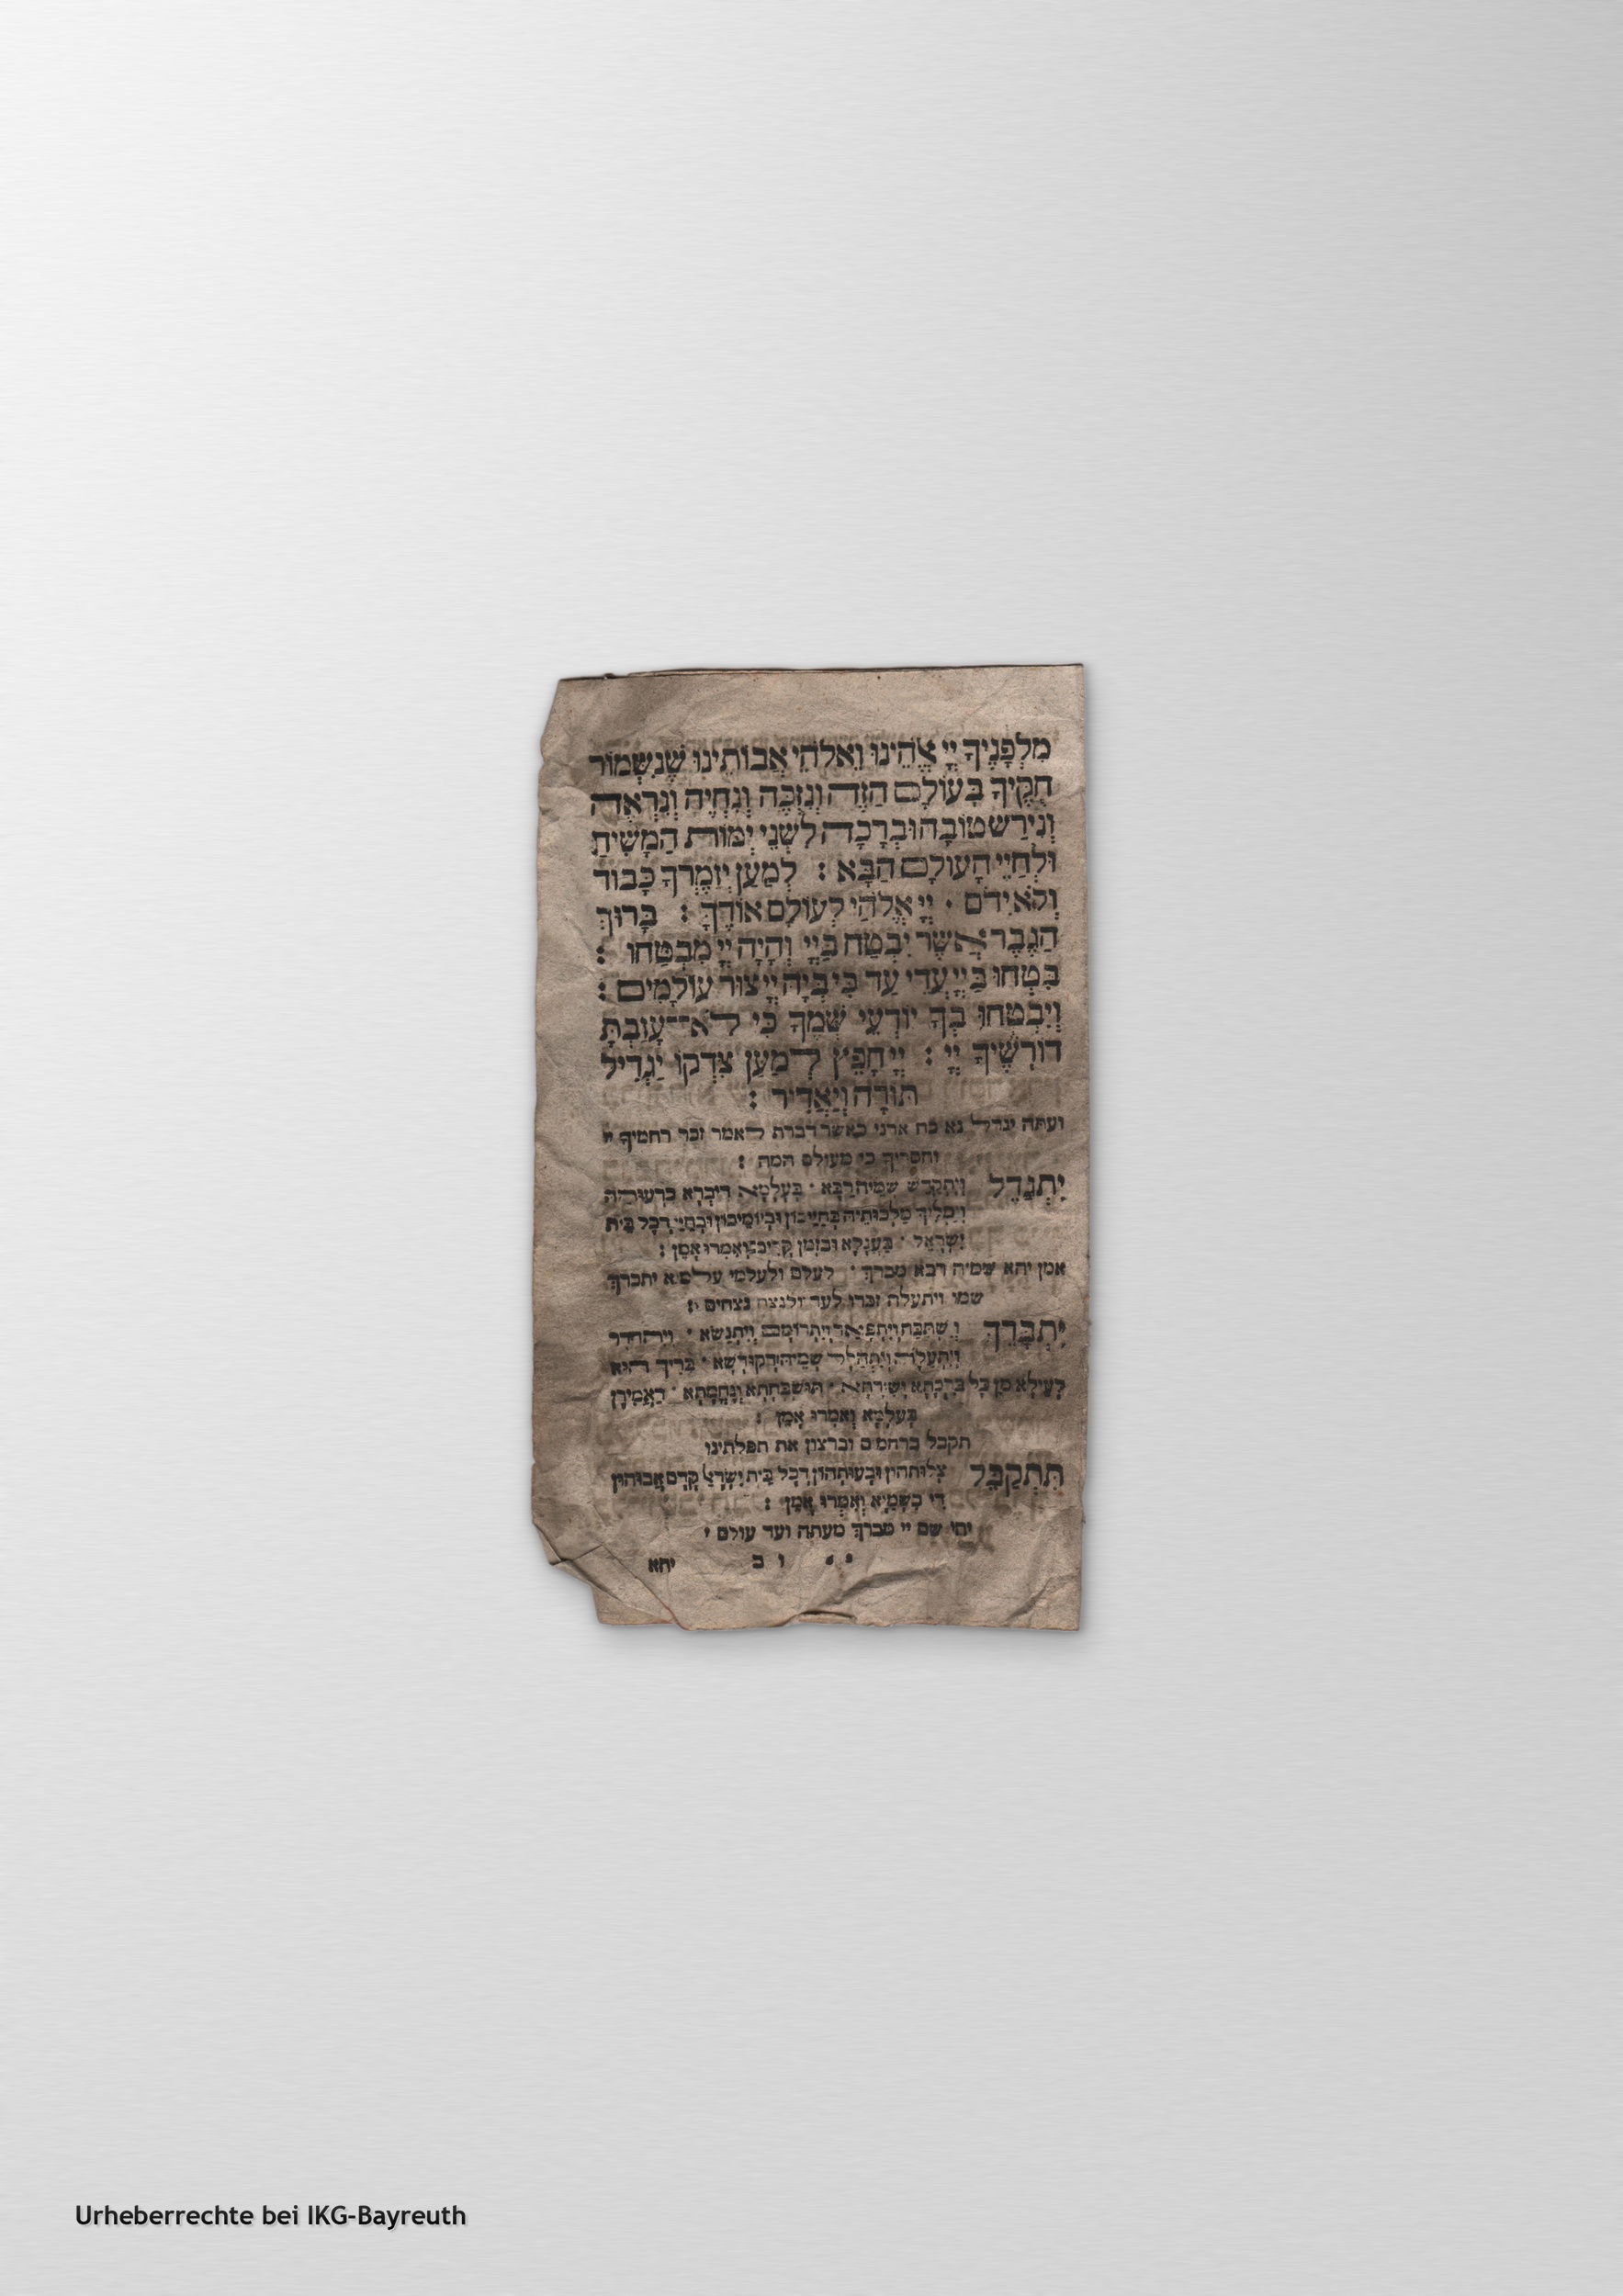 מִלְּפָנֶיךָ יְיָ אֱלֹהֵינוּ וֵאלֹהֵי אֲבוֹתֵינוּ שֶׁנִּשְׁמוֹר
חֻקֶּיךָ בָּעוֹלָם הַזֶּה וְנִזְכֶּה וְנִחְיֶה וְנִרְאֶה
וְנִירַשׁ טוֹבָה וּבְרָכָה לִשְׁנֵי יְמוֹת הַמָּשִׁיחַ
וּלְחַיֵּי הָעוֹלָם הַבָּא : לְמַעַן יְזַמֶּרְךָ כָּבוֹד
וְלֹא יִדֹּם · יְיָ אֱלֹהַי לְעוֹלָם אוֹדֶךָּ : בָּרוּךְ
הַגֶּבֶר אֲשֶׁר יִבְטַח בַּיְיָ וְהָיָה יְיָ מִבְטַחוֹ :
בִּטְחוּ בַיְיָ עֲדֵי עַד כִּי בְּיָהּ יְיָ צוּר עוֹלָמִים :
וְיִבְטְחוּ בְךָ יוֹדְעֵי שְׁמֶךָ כִּי לֹא־עָזַבְתָּ
דוֹרְשֶׁיךָ יְיָ : יְיָ חָפֵץ לְמַעַן צִדְקוֹ יַגְדִּיל
תּוֹרָה וְיַאֲדִיר :
ועתה יגדל נא כח אדני כאשר דברת לאמר זכר רחמיך יי
וחסדיך כי מעולם המה :
יִתְגַּדֵּל וְיִתְקַדַּשׁ שְׁמֵיהּ רַבָּא · בְּעָלְמָא דִּיבְרָא כִרְעוּתֵיהּ
וְיַמְלִיךְ מַלְכוּתֵיהּ בְּחַיֵּיכוֹן וּבְיוֹמֵיכוֹן וּבְחַיֵּי דְכָל בֵּית
יִשְׂרָאֵל · בַּעֲגָלָא וּבִזְמַן קָרִיב וְאִמְרוּ אָמֵן :
אמן יהא שמיה רבא מברך · לעלם ולעלמי עלמיא יתברך
שמו ויתעלה זכרו לעד ולנצח נצחים :
יִתְבָּרֵךְ וְיִשְׁתַּבַּח וְיִתְפָּאַר וְיִתְרוֹמַם וְיִתְנַשֵּׂא · וְיִתְהַדָּר
וְיִתְעַלֶּה וְיִתְהַלָּל שְׁמֵיהּ דְּקוּדְשָׁא · בְּרִיךְ הוּא
לְעֵילָּא מִן כָּל בִּרְכָתָא וְשִׁירָתָא · תּוּשְׁבְּחָתָא וְנֶחֱמָתָא · דַּאֲמִירָן
בְּעָלְמָא וְאִמְרוּ אָמֵן :
תקבל ברחמים וברצון את תפלתינו
תִּתְקַבֵּל צְלוֹתְהוֹן וּבָעוּתְהוֹן דְכָל בֵּית יִשְׂרָאֵל קֳדָם אֲבוּהוֹן
דִּי בִשְׁמַיָּא וְאִמְרוּ אָמֵן :
יהי שם יי מברך מעתה ועד עולם :
ו ב יהא
Urheberrechte bei IKG-Bayreuth